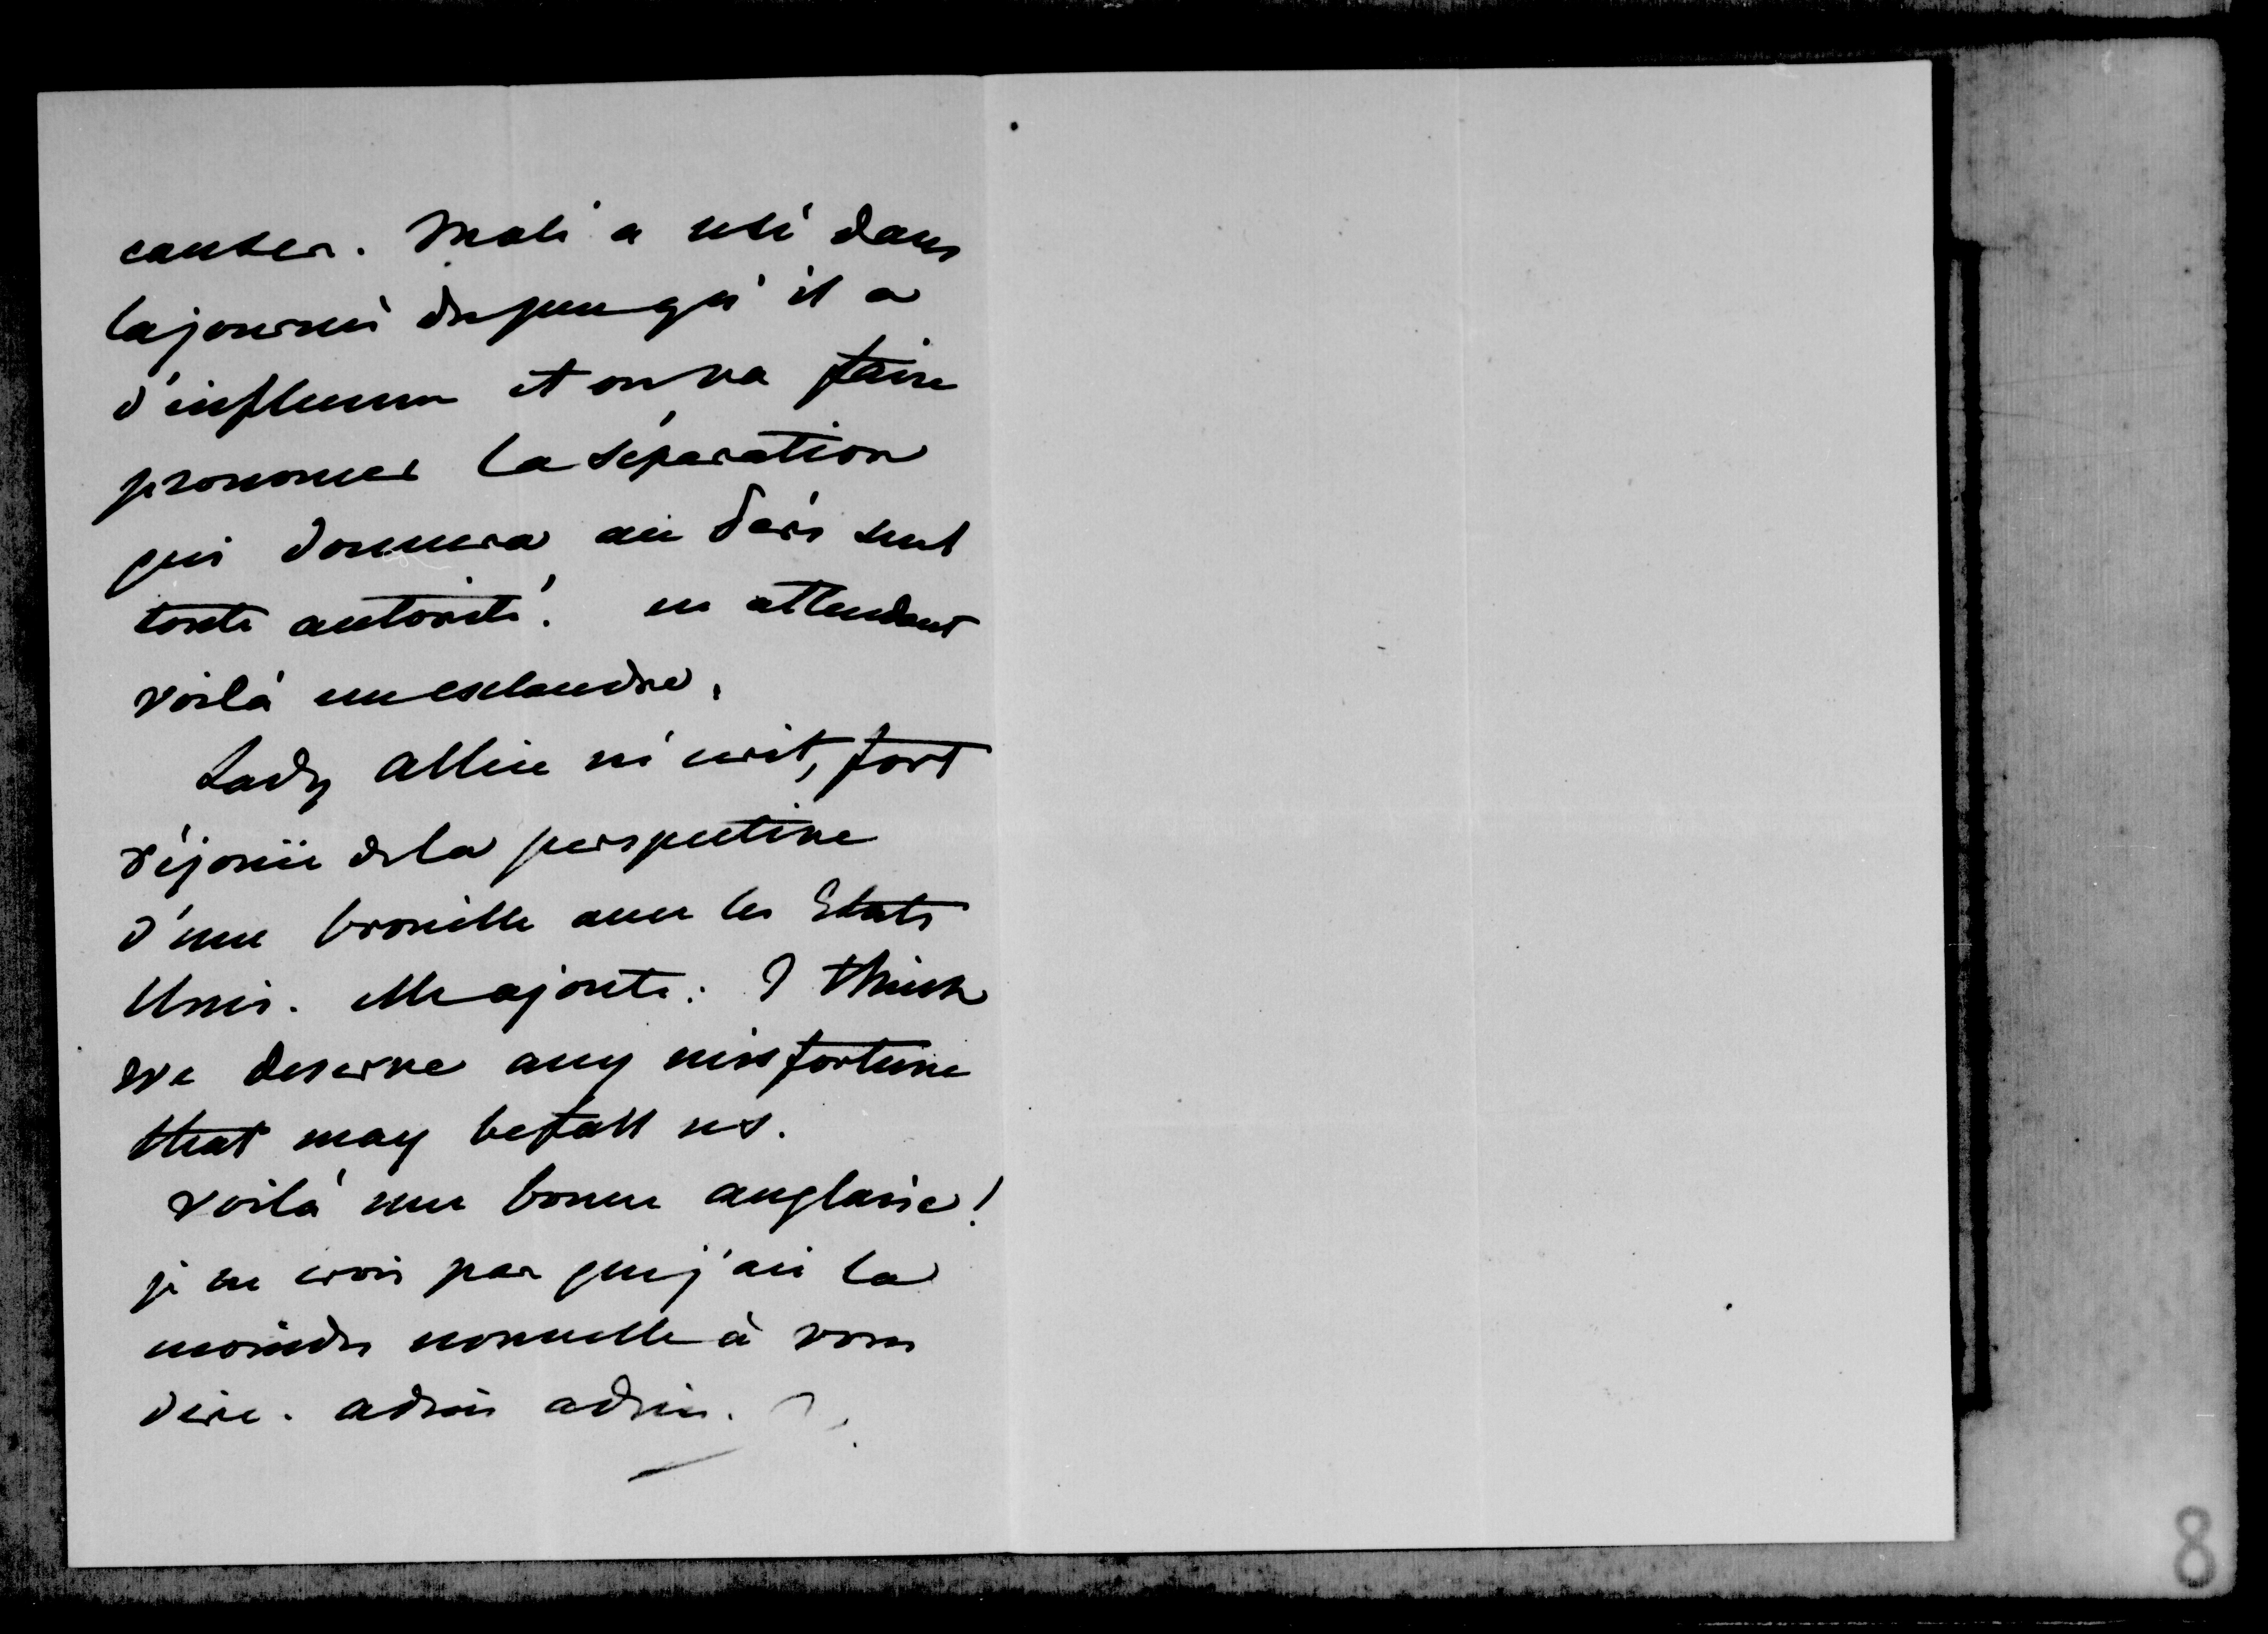 causer. Molé a usé dans
la journée du peu qu'il a
d'influence et on va faire
prononcer la séparation
qui donnera au Père seul
toute autorité. en attendant
voilà un esclandre.
Lady Allice m'écrit, fort
réjouie de la perspective
d'une brouille avec les Etats
Unis. elle ajoute : I think
we deserve any misfortune
that may befall us.
voilà une bonne anglaise !
je ne crois pas que j'aie la
moindre nouvelle à vous
dire. adieu adieu.
8